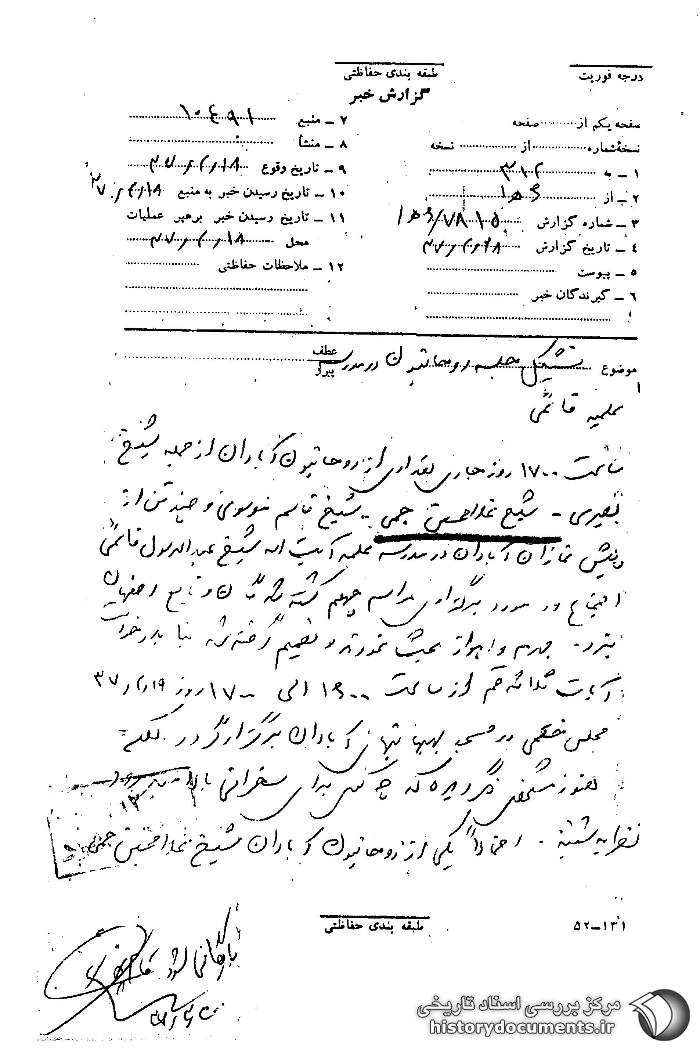 درجه فوریت
طبقه بندی حفاظتی
گزارش خبر
صفحه یکم از صفحه
نسخه شماره از نسخه
۱ – به ۳۱۲
۲ – از ۵ ه‍ ۱
۳ – شماره گزارش
۴ – تاریخ گزارش
۵ – پیوست
۶ – گیرندگان خبر
۷ – منبع ۱۰۴۹۱
۸ – منشأ
۹ – تاریخ وقوع
۱۰ – تاریخ رسیدن خبر به منبع
۱۱ – تاریخ رسیدن خبر برهبر عملیات
محل
۱۲ – ملاحظات حفاظتی
موضوع تشکیل جلسه روحانیون در مدرسه
عطف
پیرو
علمیه قائمی
ساعت ۱۷۰۰ روز جاری تعدادی از روحانیون آبادان از جمله شیخ
نصیری – شیخ غلامحسین جمی – شیخ قاسم موسوی و چند تن از
پیش نمازان آبادان در مدرسه علمیه آیت اله شیخ عبدالرسول قائمی
اجتماع و در مورد برگزاری مراسم چهلم کشته شدگان وقایع اصفهان
یزد – جهرم و اهواز بحث نمودند و تصمیم گرفته شد بنا بدرخواست
آیات ثلاثه قم از ساعت ۱۶۰۰ الی ۱۷۰۰ روز
مجلس ختمی در مسجد بهبهانیهای آبادان برگزار گردد. لکن
هنوز مشخص نگردیده که چه کسی برای سخرانی بالای منبر
نظریه شنبه – احتمالاً یکی از روحانیون آبادان شیخ غلامحسین جمی
طبقه بندی حفاظتی
۵۲–۱۳۱
بایگانی شود
مرکز بررسی اسناد تاریخی
historydocuments.ir